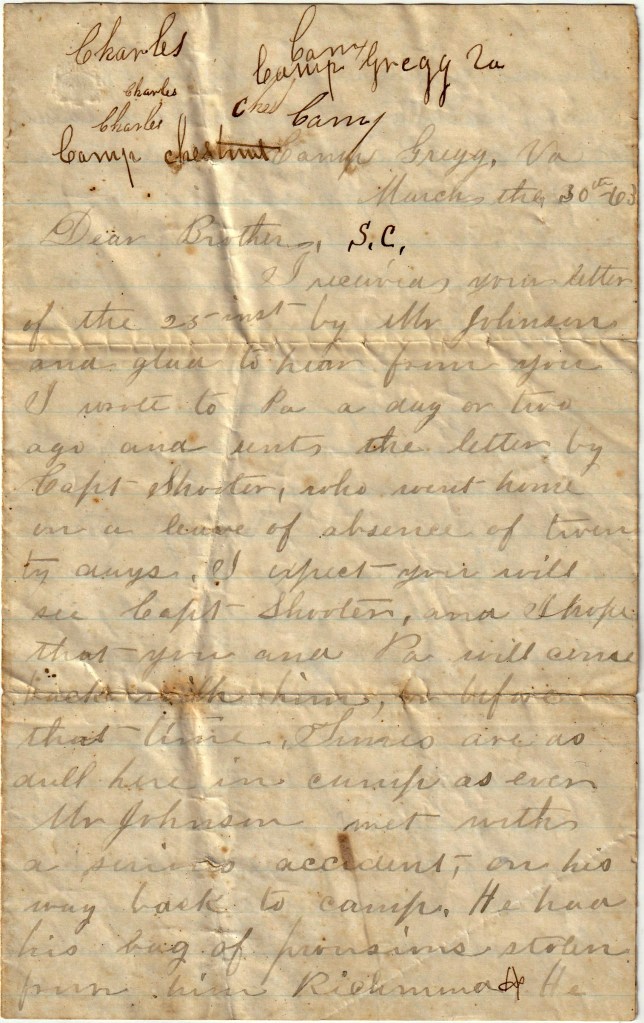 Charles
Camp
Camp Gregg Va
Charles
Ches
Charles
Camp
Camp Chestnut
Camp Gregg, Va
March the 30th 63
Dear Brother, S.C.
I received your letter
of the 25 inst by Mr Johnson
and glad to hear from you
I wrote to Pa a day or two
ago and sent the letter by
Capt Shooter, who went home
on a leave of absence of twen
ty days. I expect you will
see Capt Shooter, and I hope
that you and Pa will come
back with him, or before
that time. Times are as
dull here in camp as ever
Mr Johnson met with
a serious accident, on his
way back to camp. He had
his bag of provisions stolen
from him Richmond He